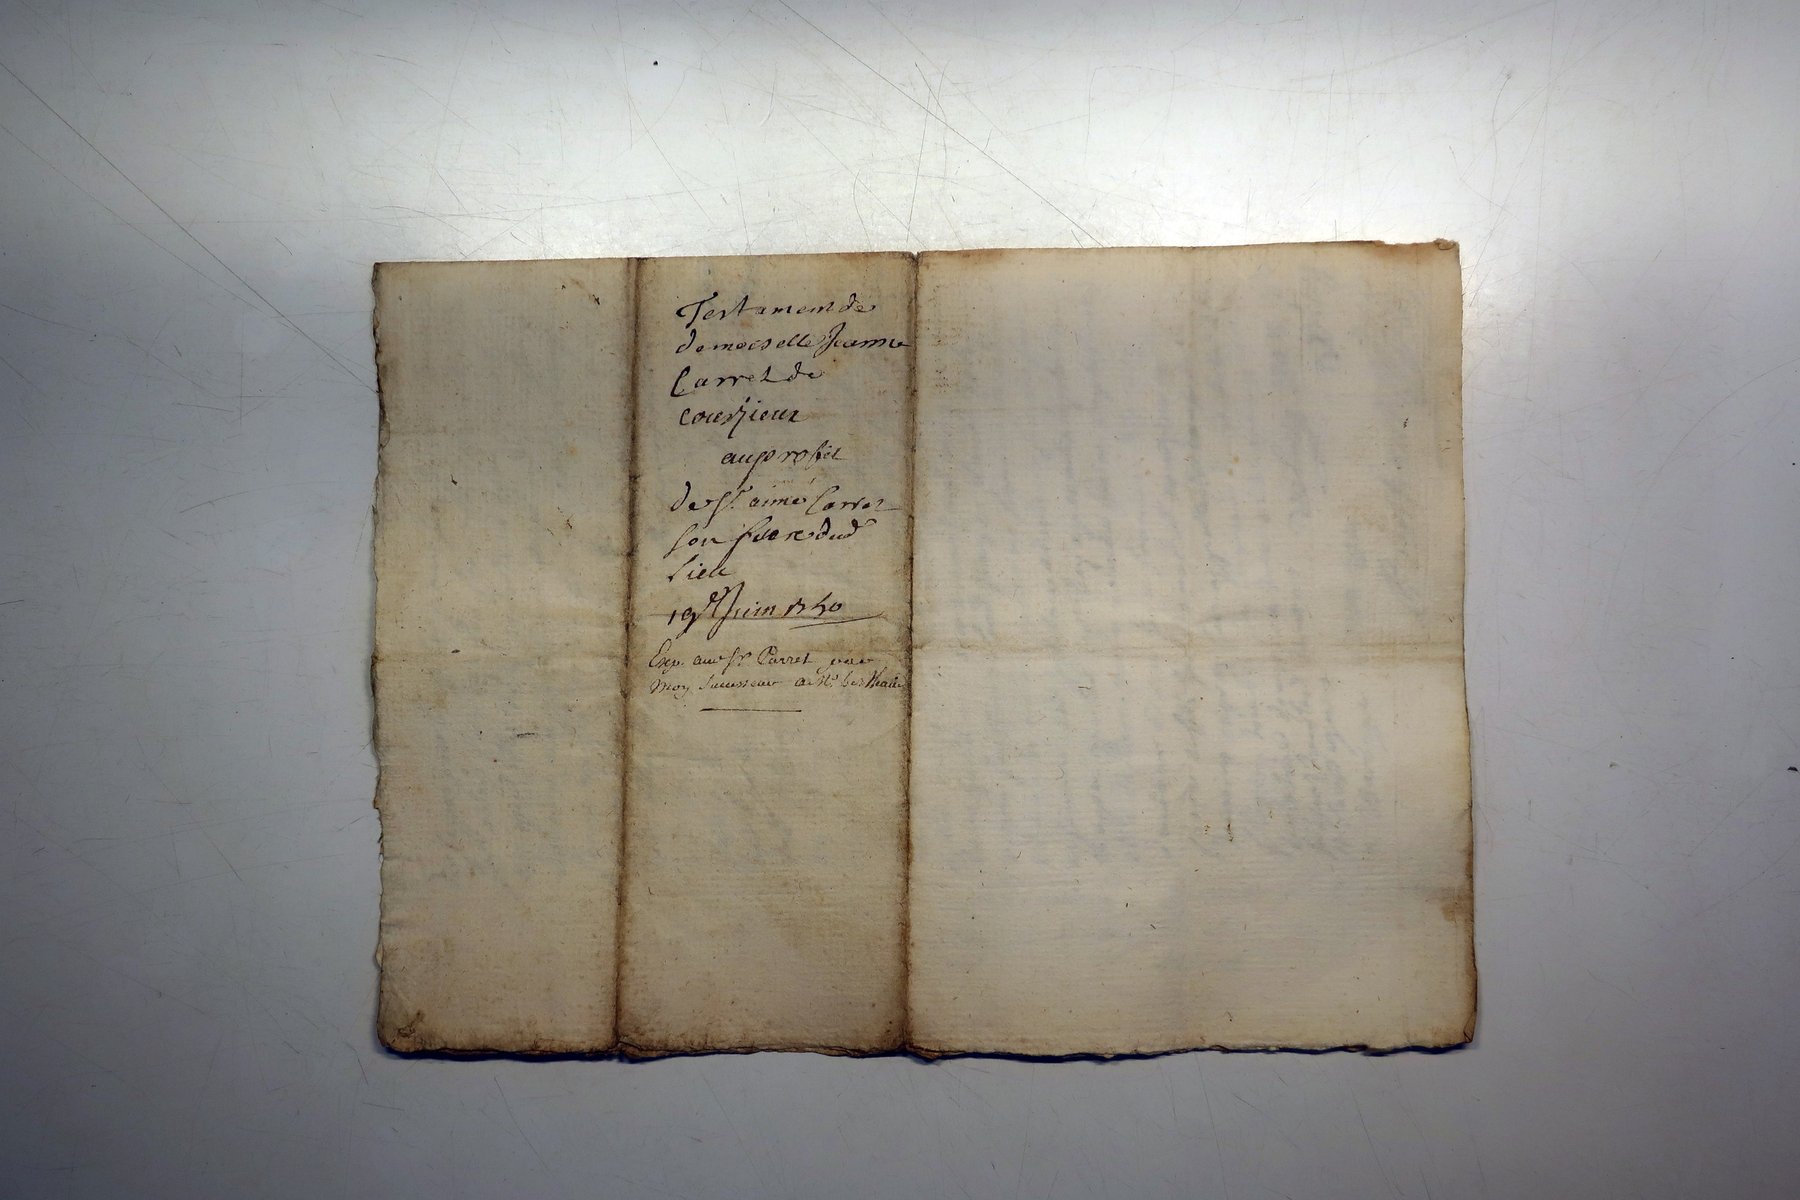 Testament de
demoiselle Jeanne
Carret de
courzieux
au proffit
de Sr. aimé Carret
son frere dud
lieu
19e Juin 1750
Exp. au Sr. Carret par
moy successeur de Me.